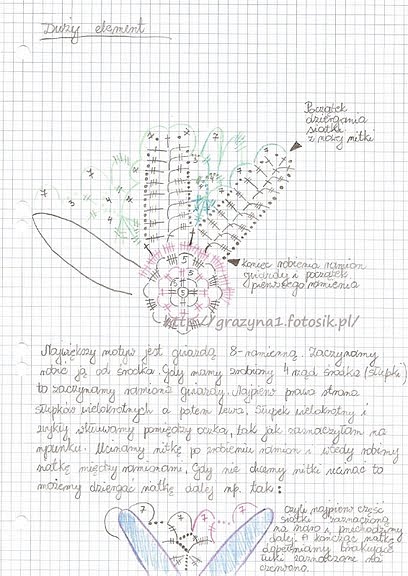 Duży element
Początek
dziergania
siatki
z nowej nitki
koniec robienia ramion
gwiazdy i początek
pierwszego ramienia
http://grazyna1.fotosik.pl/
Największy motyw jest gwiazdą 8-ramienną. Zaczynamy
robić ją od środka. Gdy mamy zrobiony 4 rząd środka (słupki)
to zaczynamy ramiona gwiazdy. Najpierw prawa strona
słupków wielokrotnych a potem lewa. Słupek wielokrotny i
zwykły wkuwamy pomiędzy oczka, tak jak zaznaczyłam na
rysunku. Ucinamy nitkę po zrobieniu ramion i wtedy robimy
siatkę między ramionami. Gdy nie chcemy nitki ucinać to
możemy dziergać siatkę dalej np. tak:
czyli najpierw część
siatki zaznaczoną
na szaro i przechodzimy
dalej. A kończąc siatkę
dopełniamy brakujące
łuki zaznaczone na
czerwono.